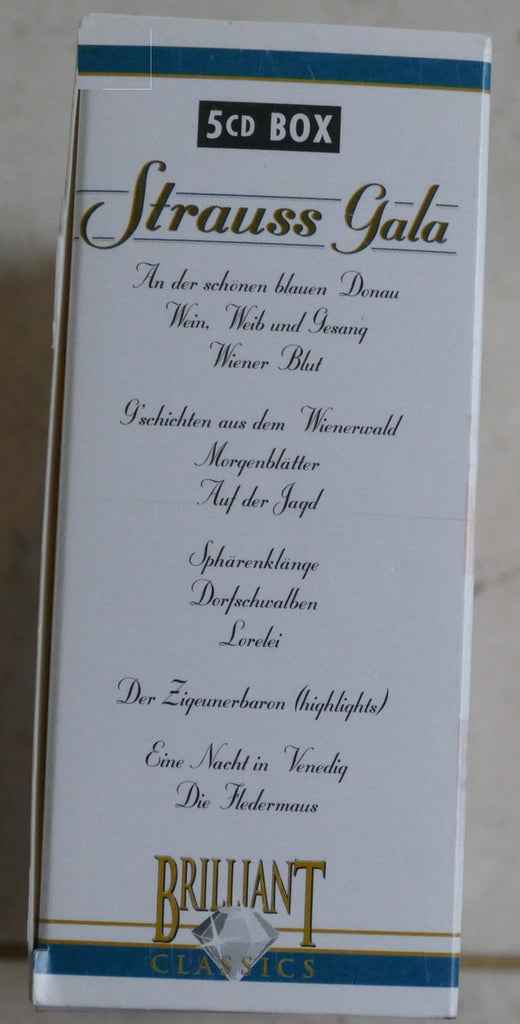 5CD BOX
Strauss Gala
An der schönen blauen Donau
Wein, Weib und Gesang
Wiener Blut
G'schichten aus dem Wienerwald
Morgenblätter
Auf der Jagd
Sphärenklänge
Dorfschwalben
Lorelei
Der Zigeunerbaron (highlights)
Eine Nacht in Venedig
Die Fledermaus
BRILLIANT
CLASSICS